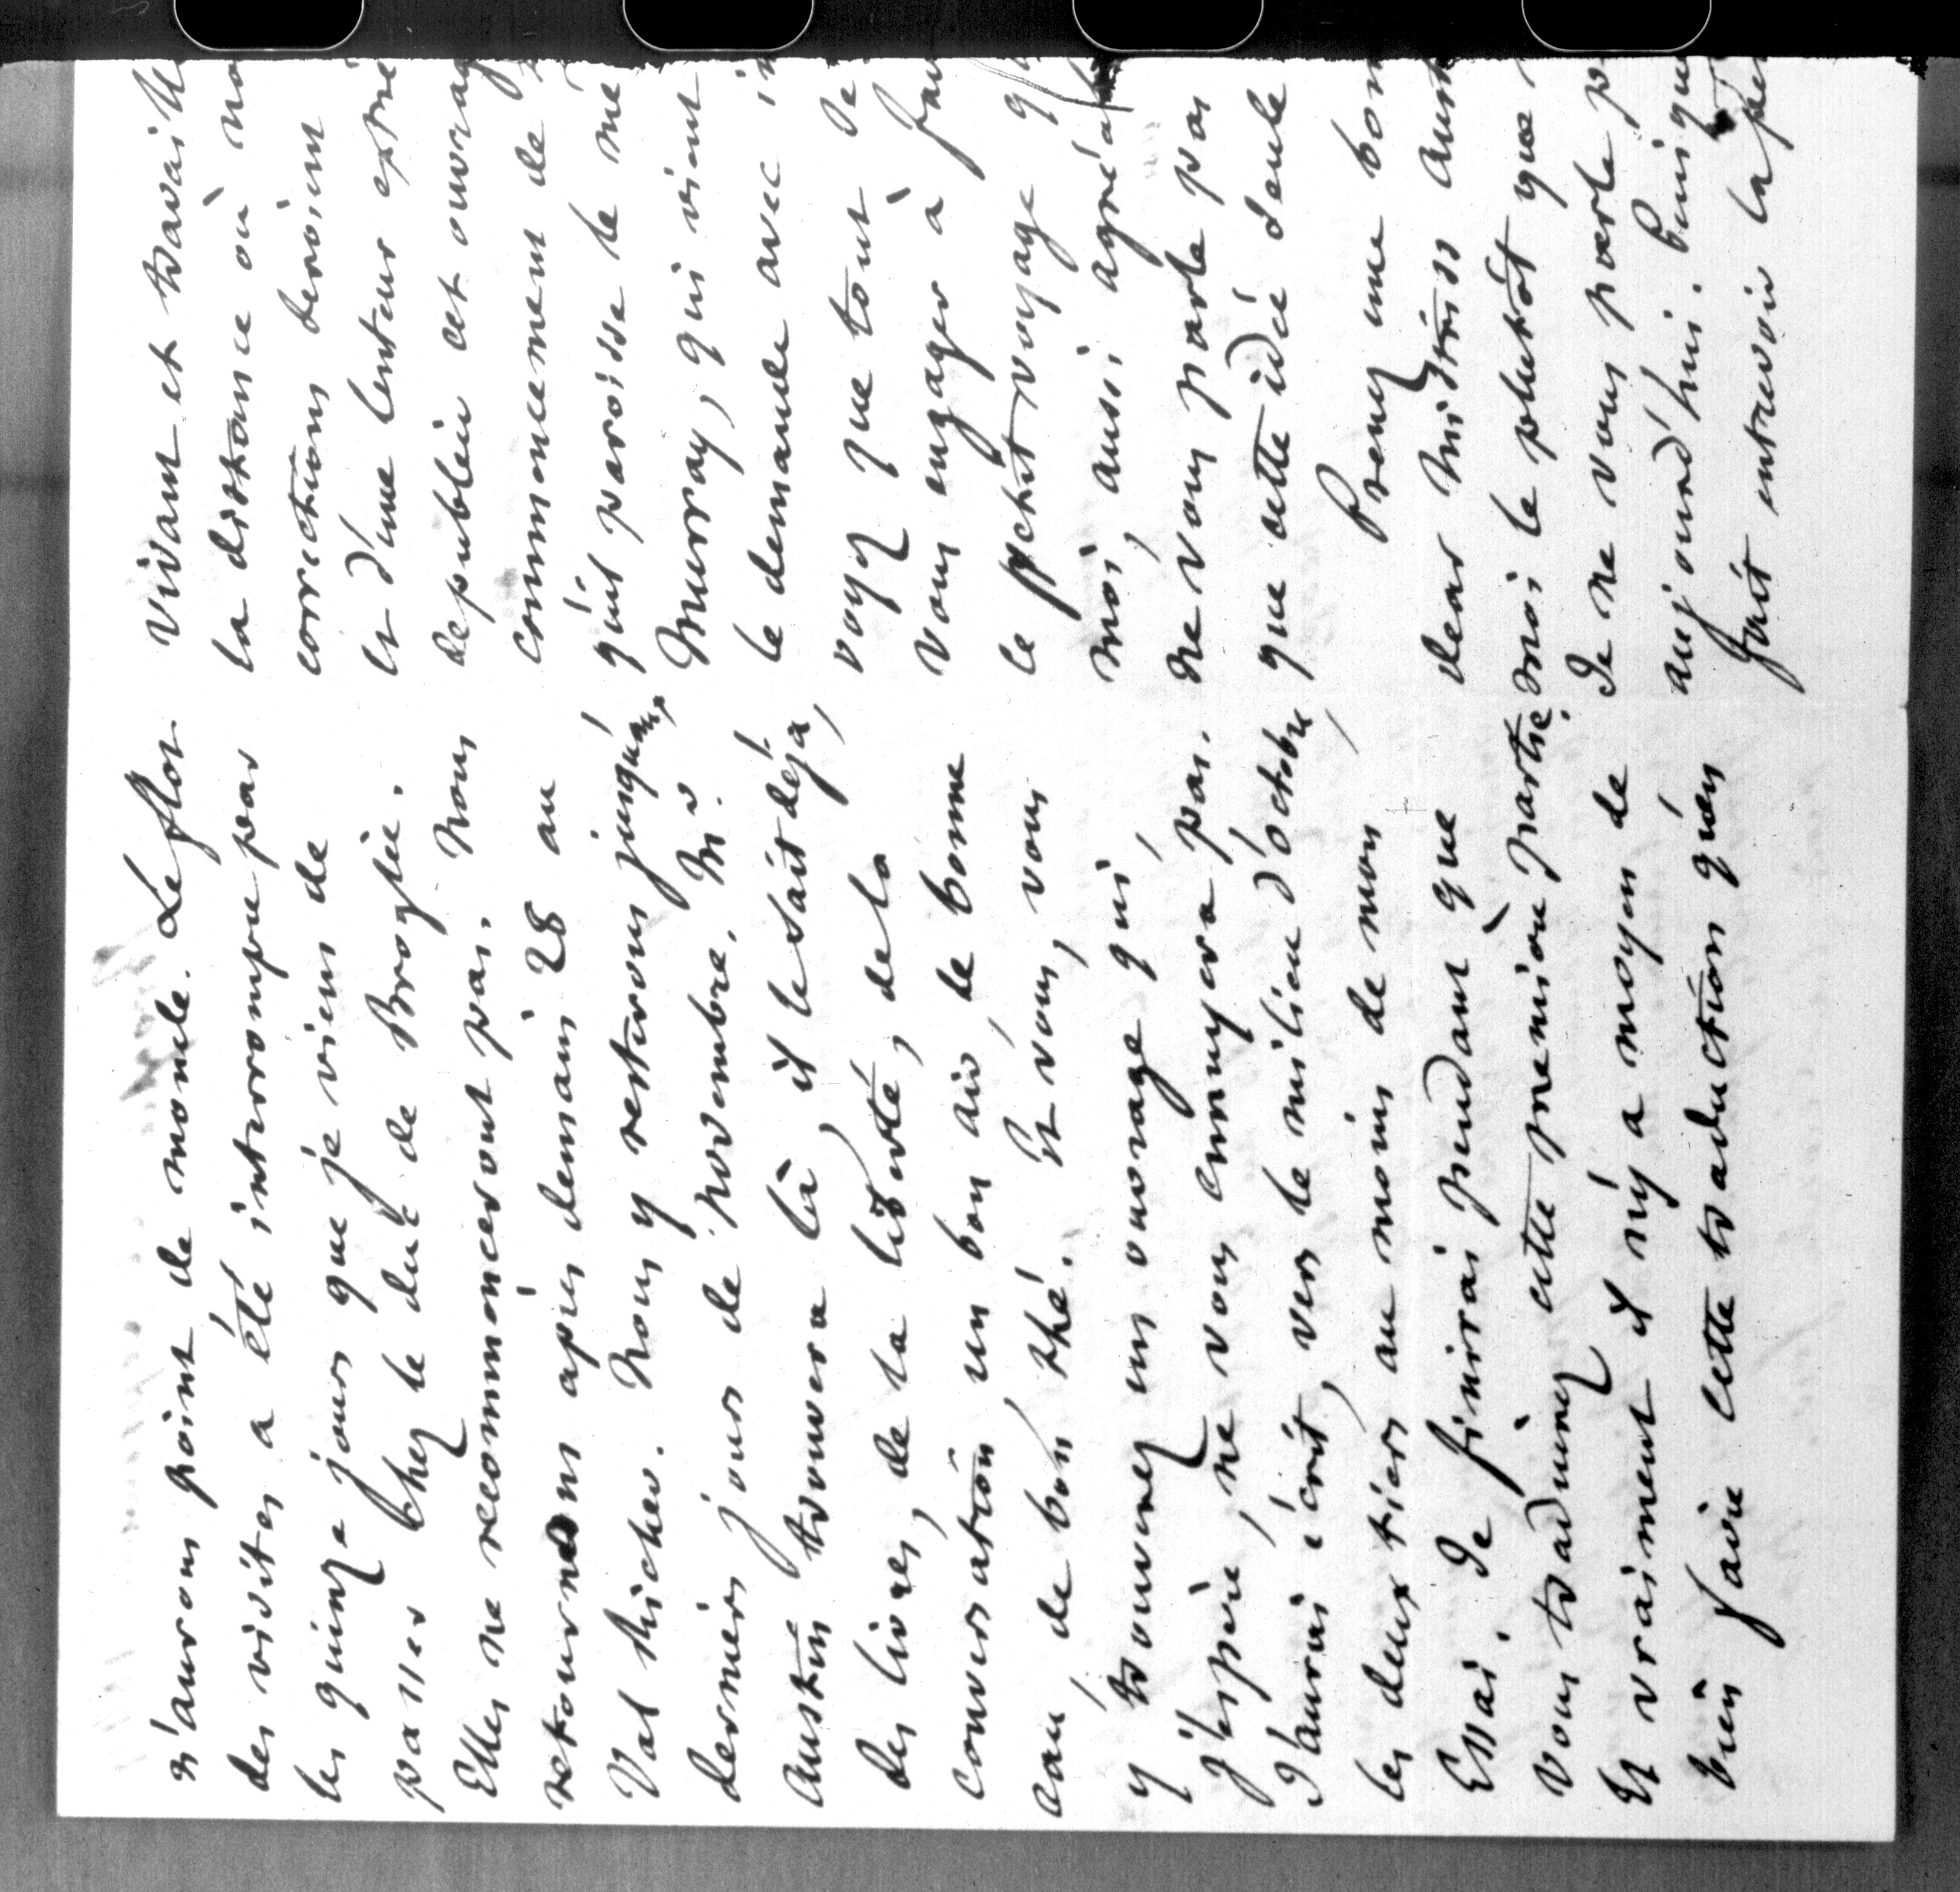 n'aurons point de monde. Le flot
des visites a été interrompu par
les quinze jours que je viens de
passer chez le duc de Broglie.
Elles ne recommenceront pas. Nous
retournons après demain 28 au
Val Richer. Nous y resterons jusqu'aux
derniers jours de novembre. Mr.
Austin trouvera là, il le sait déjà,
des livres, de la liberté, de la
conversation, un bon air, de bonne
eau, de bon thé. Et vous, vous
y trouverez un ouvrage qui,
j'espère, ne vous ennuyera pas.
J'aurai écrit, vers le milieu d'octobre,
les deux tiers au moins de mon
Essai. Je finirai pendant que
vous traduirez cette première partie.
Et vraiment il n'y a moyen de
bien faire cette traduction qu'en
vivant et
la distance où
corrections seroient
et d'une lenteur
de publier cet
commencement de
qu'il paroisse le
Murray, qui vient
le demande avec
voyez que tout
vous engager à
le petit voyage
moi, aussi
ne vous parle pas
que cette idée seule
Prenez une
dear Mistriss
moi le plutôt que
Je ne vous parle
aujourd'hui.
fait entrevoir la